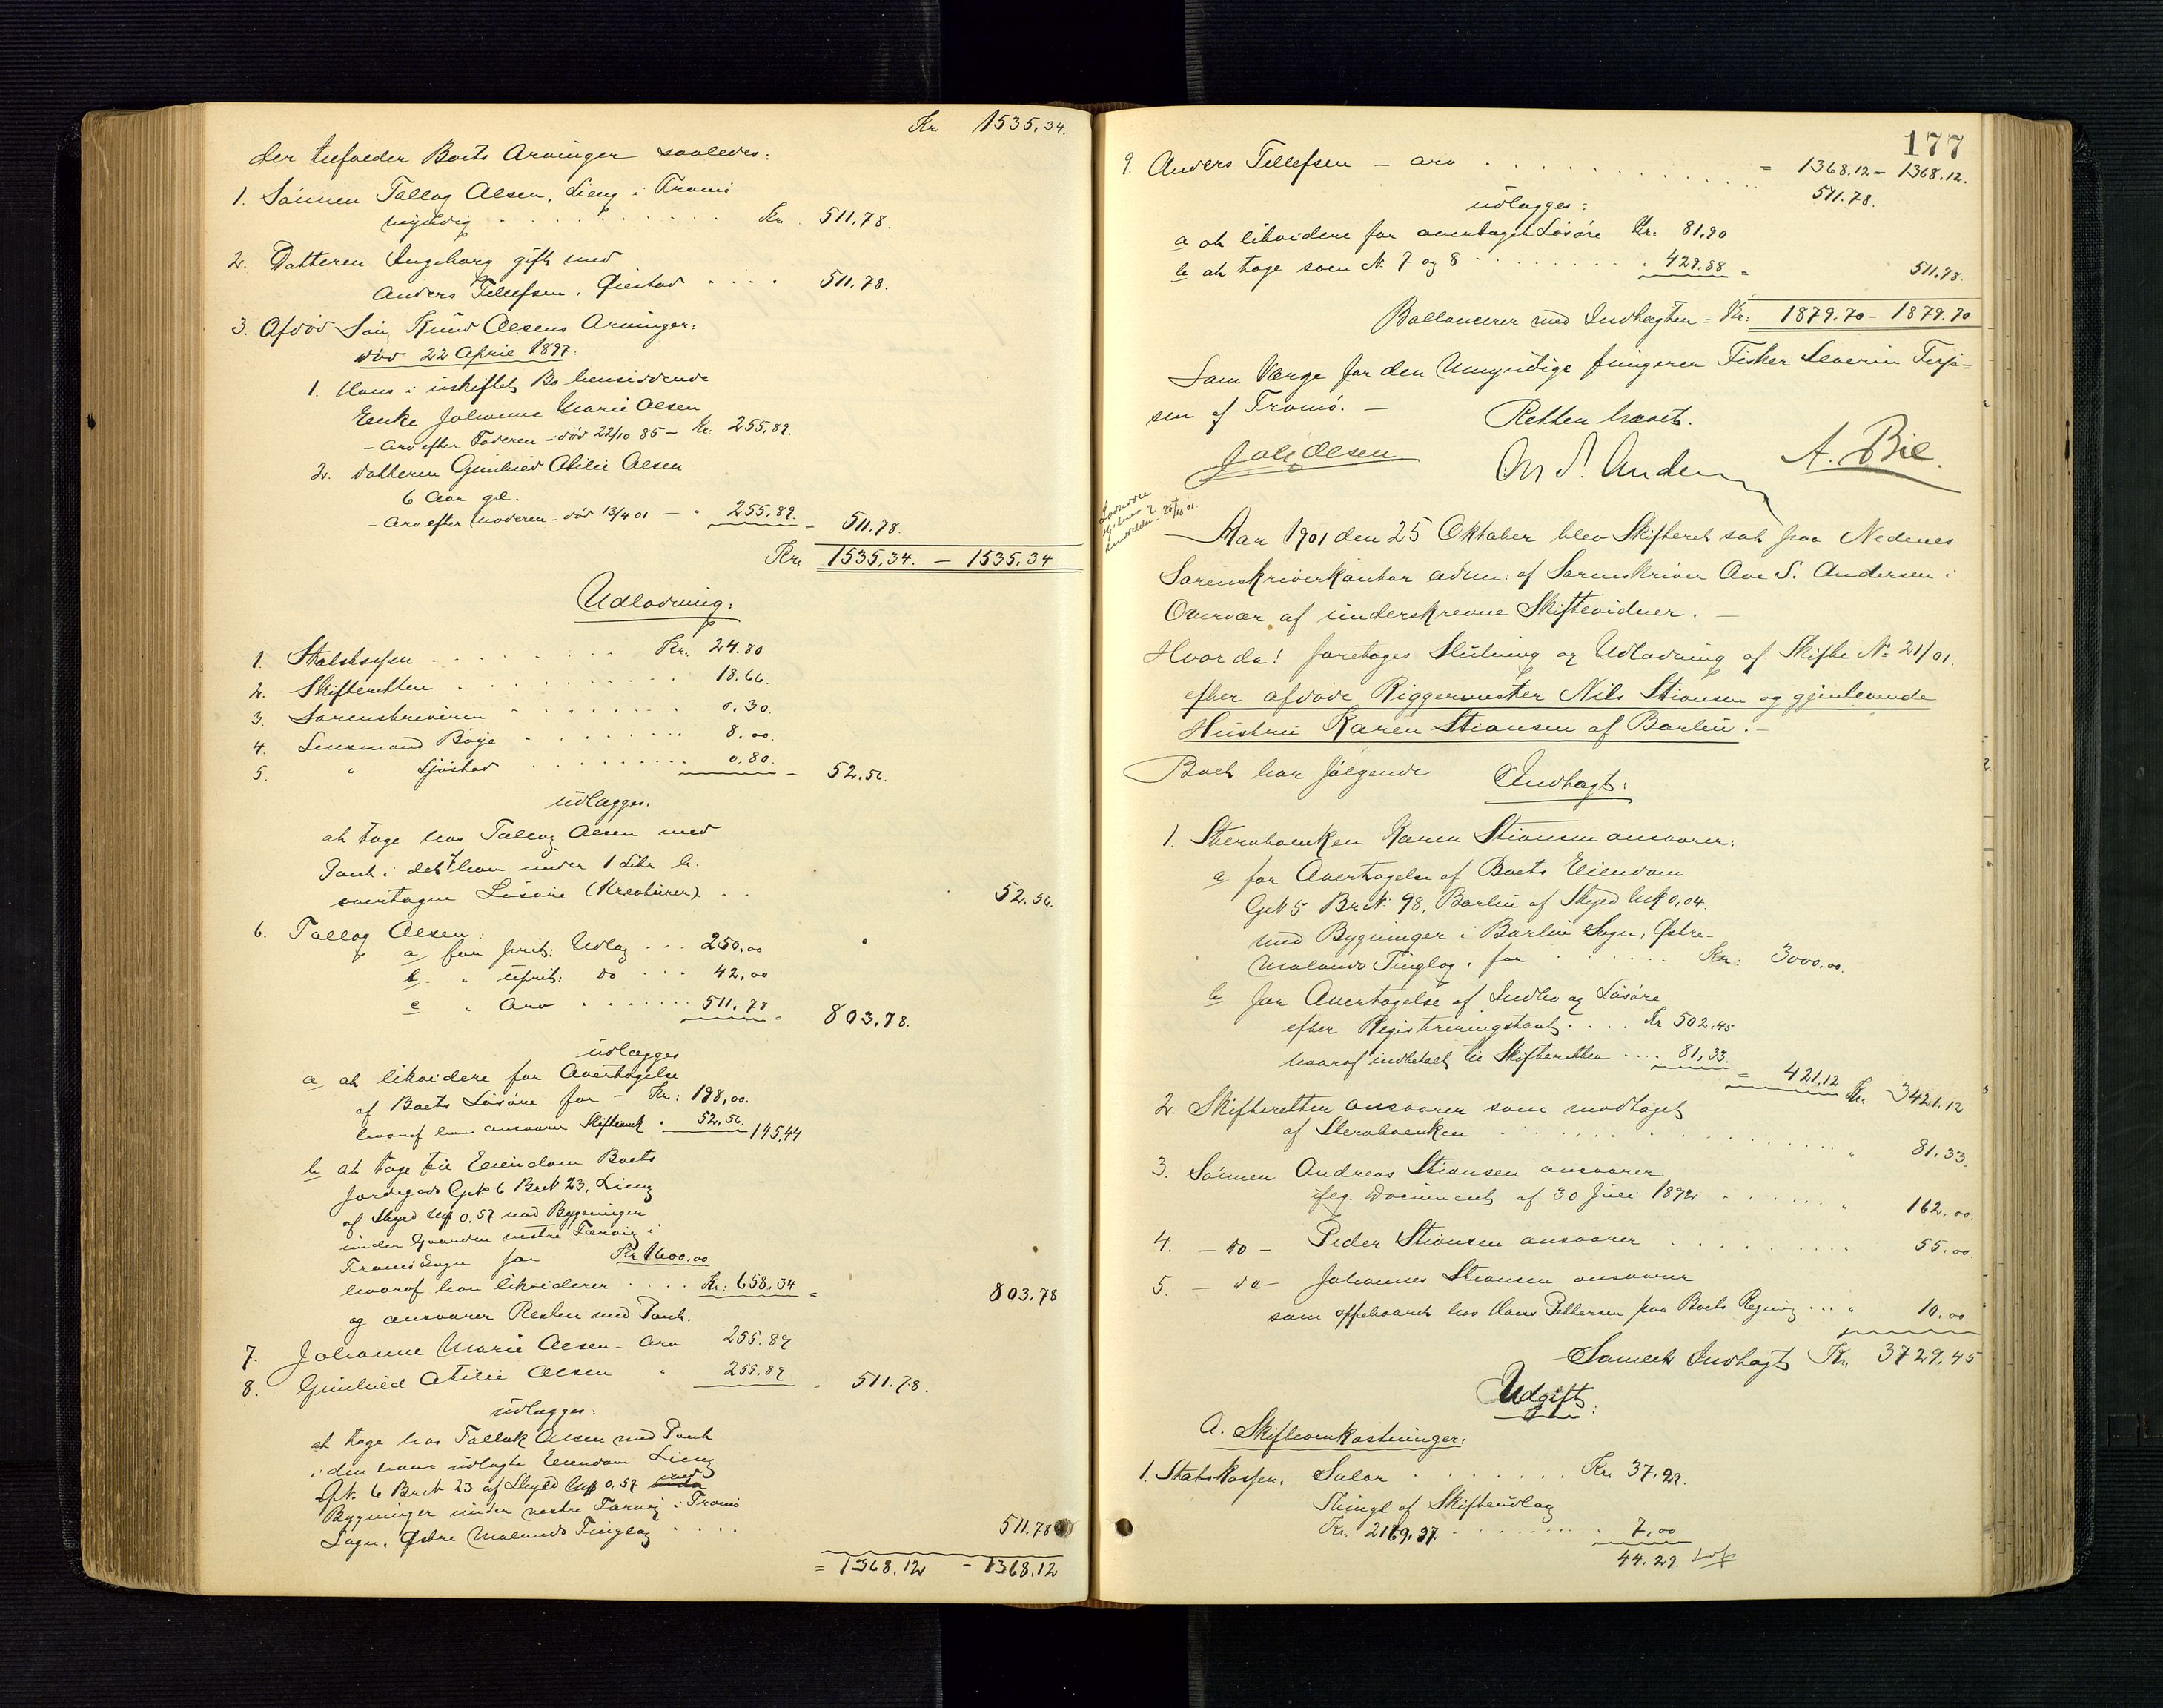 Kr. 1535,34.
der tilfalder Boets Arvinger saaledes:
1. Sønnen Tallag Olsen, Lieng i Tromø
myndig . . . . . . Kr. 511,78.
2. Datteren Ingeborg gift med
Anders Tellefsen, Øiestad . . . . 511,78.
3. Afdød Søn, Knud Olsens Arvinger:
død 22 April 1897:
1. Hans i uskiftet Bo hensiddende
Enke Johanne Marie Olsen
- Arv efter Faderen - død 22/10 85 - Kr. 255,89.
2. Datteren Gunhild Otilie Olsen
6 Aar gl.
- Arv efter Moderen - død 13/4 01 - " 255,89. - 511,78.
Kr. 1535,34. - 1535,34
Udlodning:
1. Statskassen . . . . . Kr. 24.80
2. Skifteretten . . . . . 18.66.
3. Sorenskriveren . . . . . 0.30.
4. Lensmand Bøje . . . . . 8.00.
5. " Sjöstad . . . . . 0.80. - 52.56.
udlægges:
at tage hos Tallag Olsen med
Pant i det af ham under 1 Litr b.
overtagne Løsøre (Kreaturer) . . 52.56.
6. Tallag Olsen:
a for prit: Udlæg . . . 250,00
b. " uprit: do . . . 42,00
c " Arv . . . . 511,78 = 803,78.
udlægges
a at likvidere for Overtagelse
af Boets Løsøre for - Kr: 198,00.
hvoraf han ansvarer Skifteomk. 52,56. 145,44
b at tage til Eiendom Boets
Jordegods Grb 6 Br.N 23, Lieng
af Skyld Mk 0,57 med Bygninger
under Gaarden vestre Færvig i
Tromø Sogn for Kr 1600,00
hvoraf han likviderer . . . . Kr: 658,34 = 803,78
og ansvarer Resten med Pant.
7. Johanne Marie Olsen - Arv 255.89
8. Gunhild Otilie Olsen " 255,89 - 511.78.
udlægges:
at tage hos Tallak Olsen med Pant
i den ham udlagte Eiendom Lieng
G.N. 6 Br.N 23 af Skyld Mk 0,57 med
Bygninger under vestre Færvig i Tromø
Sogn, Østre Molands Tinglag . . . . 511.78
= 1368,12 - 1368.12
177
9. Anders Tellefsen - Arv . . . . . = 1368.12 - 1368,12.
511.78.
udlægges:
a at likvidere for overtaget Løsøre Kr. 81,90
b at tage som N. 7 og 8 . . . . . 429.88 = 511,78
Ballancerer med Indtægten = Kr: 1879.70 - 1879.70
Som Værge for den Umyndige fungerer Fisker Severin Terje-
sen af Tromø. -
Retten hævet.
And. S. Andersen
A. Bie.
Aar 1901 den 25 Oktober blev Skifteret sat paa Nedenes
Sorenskriverkontor adm: af Sorenskriver Ove S. Andersen i
Overvær af underskrevne Skiftevidner. -
Hvorda! foretoges Slutning og Udlodning af Skifte No 21/01.
efter afdøde Riggermester Nils Stiansen og gjenlevende
Hustru Karen Stiansen af Barbu. -
Boet har følgende Indtægt:
1. Stervboenken Karen Stiansen ansvarer:
a for Overtagelse af Boets Eiendom
G.N 5 Br.N. 98, Barbu af Skyld Mk 0,04.
med Bygninger i Barbu Sogn, Østre-
Molands Tinglag, for . . . . . Kr: 3000,00.
b for Overtagelse af Indbo og Løsøre
efter Registreringstaxt . . . . Kr 502,45
hvoraf indbetalt til Skifteretten . . . . 81,33. = 421,12 Kr. 3421,12
2. Skifteretten ansvarer som modtaget
af Stervboenken . . . . . " 81.33.
3. Sønnen Andreas Stiansen ansvarer
iflg. Document af 30 Juli 1892 . . . . . " 162,00.
4. - do - Peder Stiansen ansvarer . . . . . " 55.00.
5. - do - Johannes Stiansen ansvarer
som oppebaaret hos Hans Pettersen paa Boets Regning . . . " 10.00
Samlet Indtægt Kr. 3729,45
Udgift:
A. Skifteomkostninger:
1. Statskassen, Salær . . . . . Kr. 37,29.
Stempl. af Skifteudlæg
Kr. 2169,37 . . . . . . 7,00
44.29.